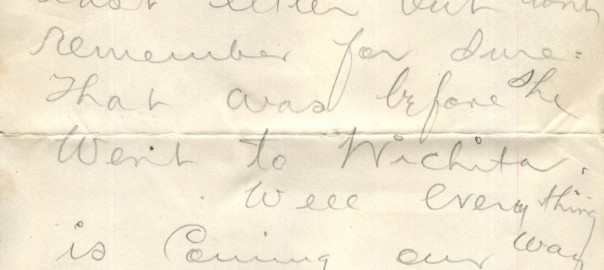 last letter but can't
Remember for Sure:
That was before She
Went to Wichita.
Well Everything
is Coming our way